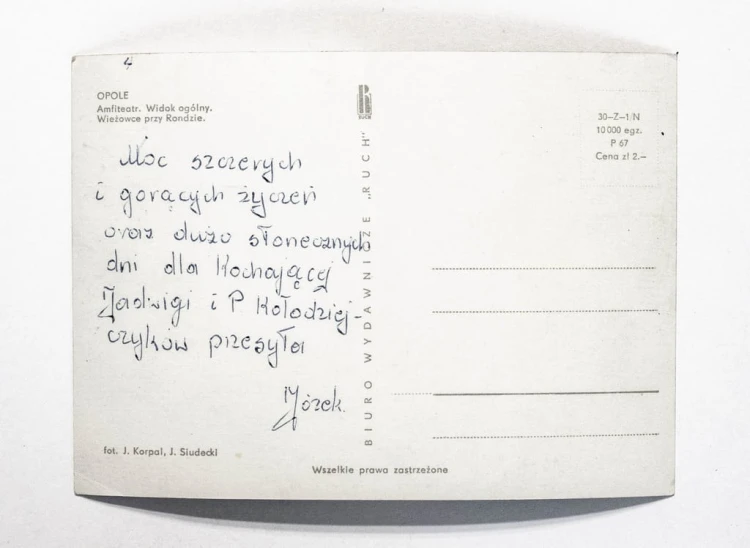 4
OPOLE
Amfiteatr. Widok ogólny.
Wieżowce przy Rondzie.
Moc szczerych
i gorących życzeń
oraz dużo słonecznych
dni dla Kochającej
Jadwigi i P Kołodziej-
czyków przesyła
Józek.
fot. J. Korpal, J. Siudecki
RUCH
BIURO WYDAWNICZE „RUCH"
30-Z-1/N
10 000 egz.
P 67
Cena zł 2.-
Wszelkie prawa zastrzeżone